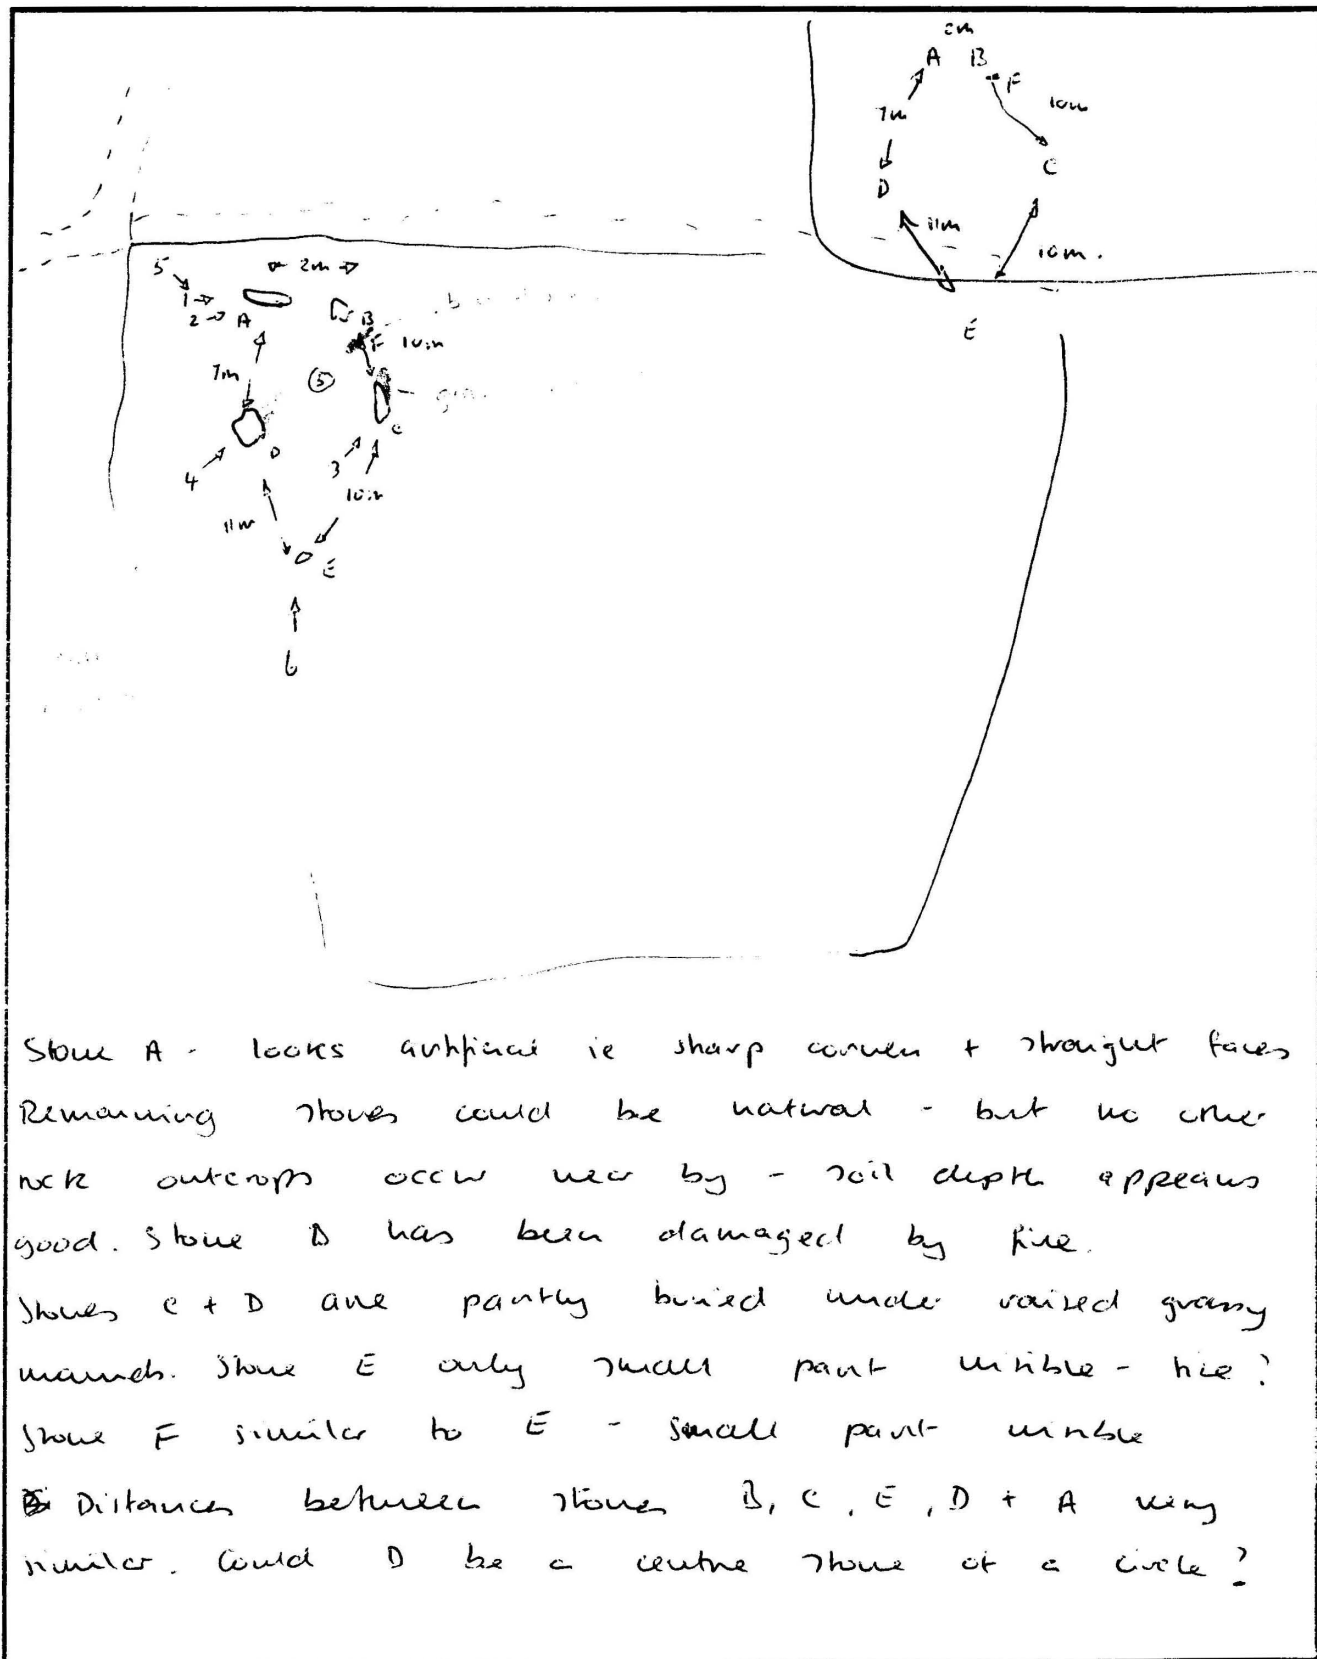 2m
A B
F
7m
10m
C
D
11m
10m.
E
5
2m
1
2
A
B
F
10m
7m
5
C
D
4
3
10m
11m
E
6
Stone A - looks artificial ie sharp corners + straight faces
Remaining stones could be natural - but no other
rock outcrops occur near by - soil depth appears
good. Stone D has been damaged by fire.
Stones C + D are partly buried under raised grassy
mounds. Stone E only small part visible -
Stone F similar to E - small part visible
Distances between stones B, C, E, D + A very
similar. Could D be a centre stone of a circle?